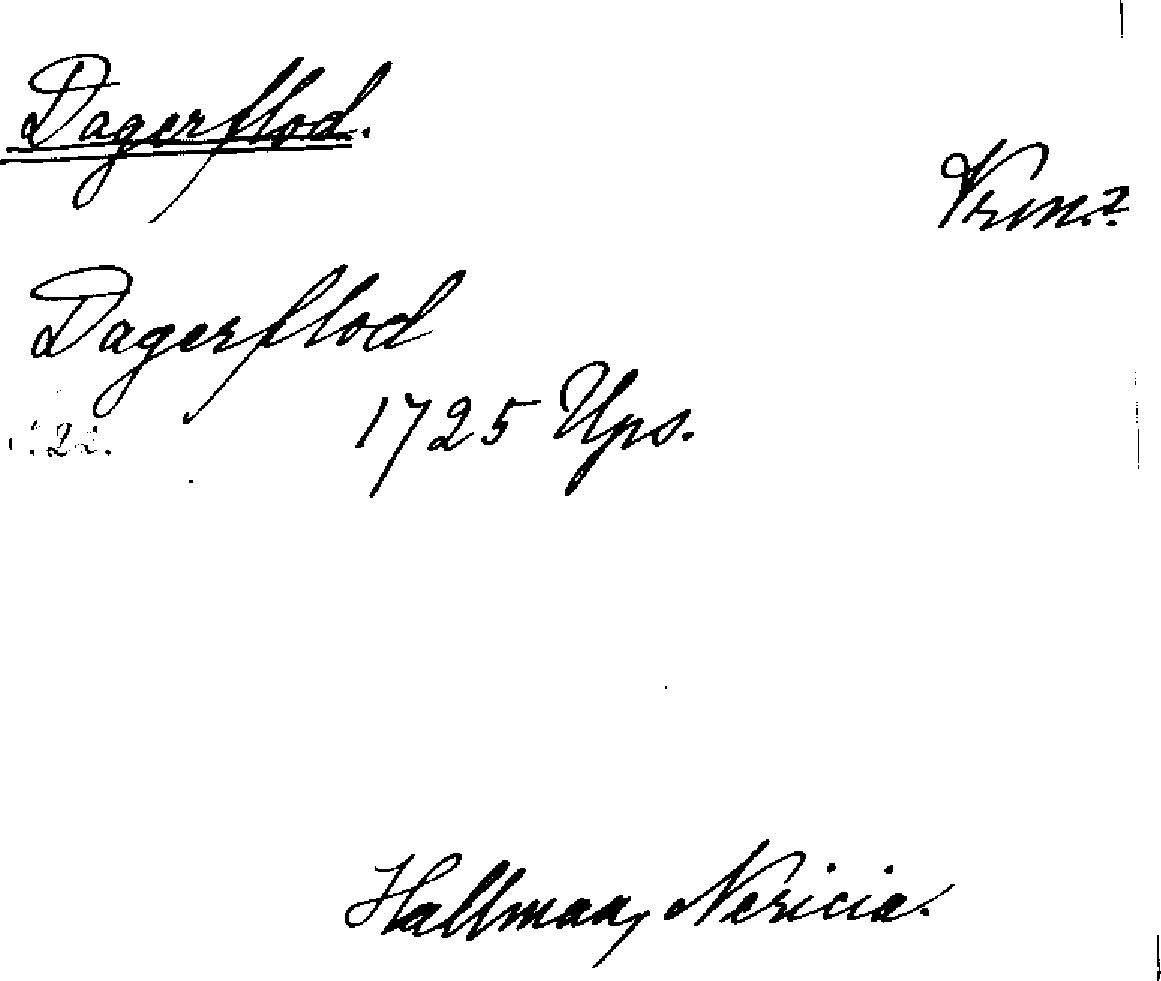 Dagerflod.
Vrm.?
Dagerflod
1725 Ups.
22.
Hallman, Nericia.